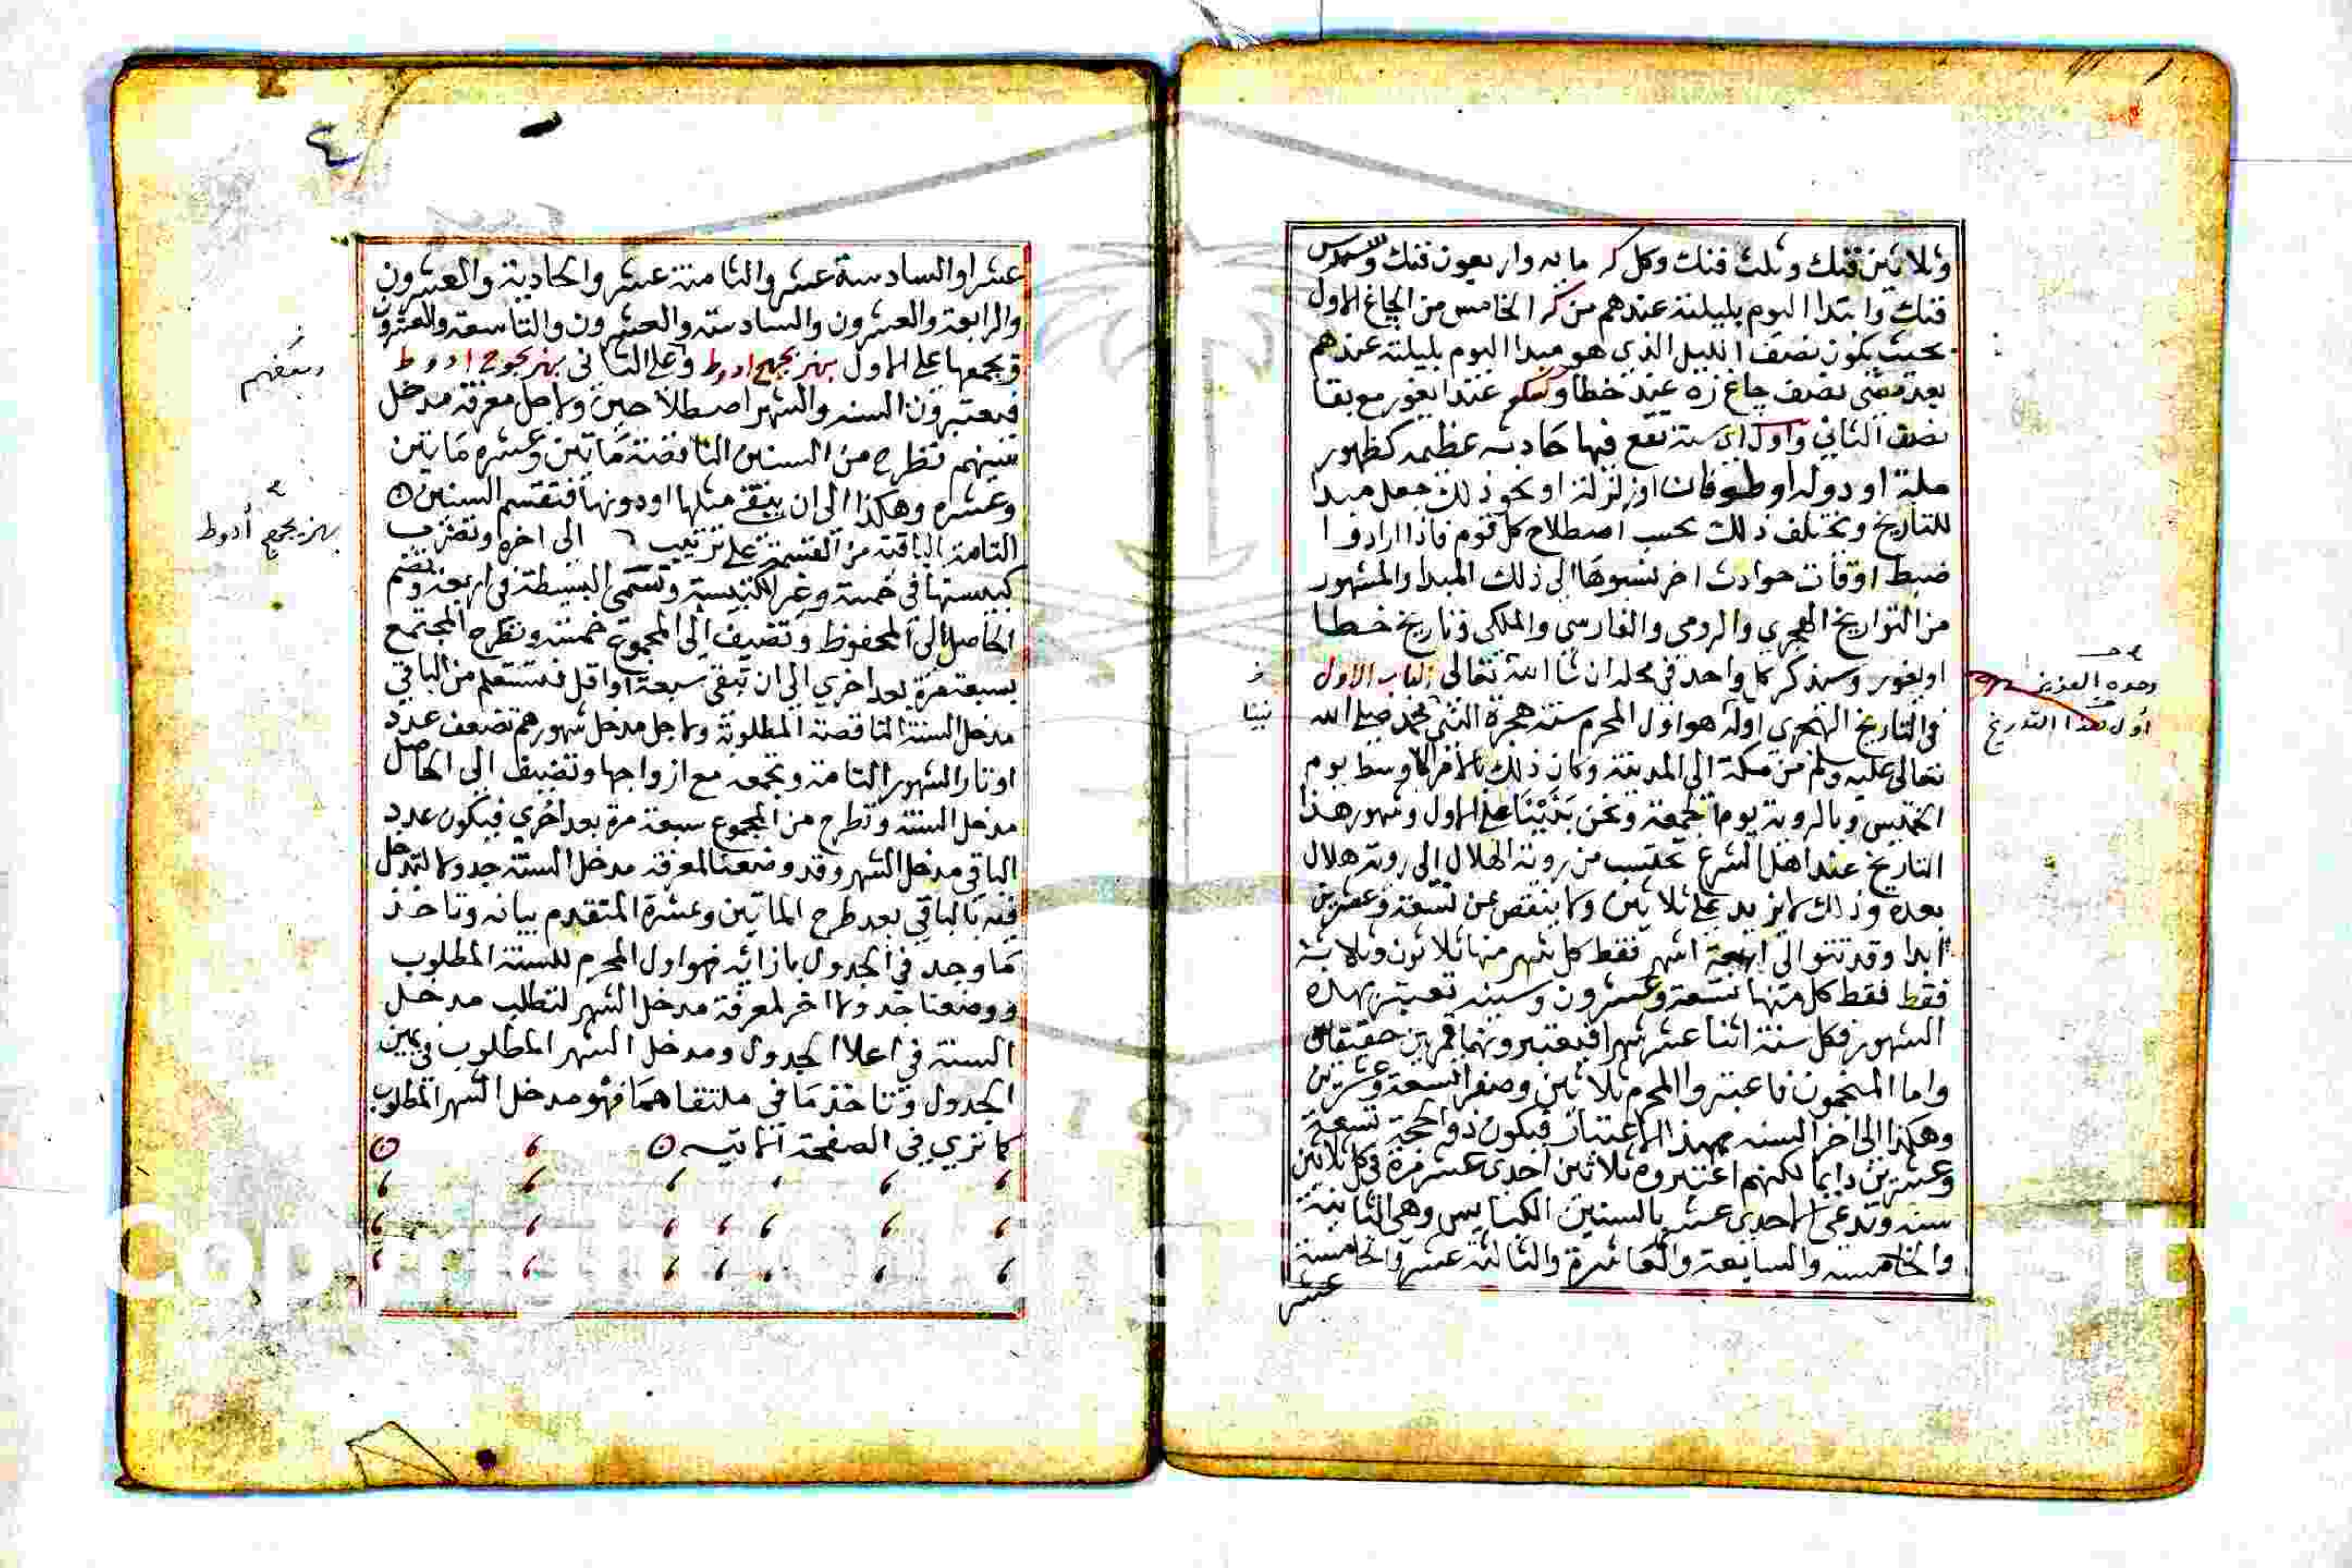 وثلاثين فنك وثلث فنك وكل كه مايه واربعون فنك وسدس
فنك وابتدا اليوم بليلته عندهم من كه الخامس من الجاغ الاول
بحيث يكون نصف الليل الذي هو مبدا اليوم بليلته عندهم
بعد مضي نصف جاغ زه عند خطا وكسكو عند ايغور مع بقا
نصف الثاني واول اي سنة تقع فيها حادثه عظيمه كظهور
ملة او دوله او طوفان او زلزلة او نحو ذلك جعل مبدا
للتاريخ ويختلف ذلك بحسب اصطلاح كل قوم فاذا ارادوا
ضبط اوقات حوادث اخر نسبوها الى ذلك المبدا والمشهور
من التواريخ الهجري والرومي والفارسي والملكي وتاريخ خطا
اويغور وسنذكر كل واحد في محله ان شا الله تعالى الباب الاول
في التاريخ الهجري اوله هو اول المحرم سنة هجرة النبي محمد صلى الله
تعالى عليه وسلم من مكة الى المدينة وكان ذلك بالامر الاوسط يوم
الخميس وبالروية يوم الجمعة ونحن بنينا على الاول وشهور هذا
التاريخ عند اهل الشرع تحتسب من روية الهلال الى روية هلال
بعده وذلك لا يزيد على ثلاثين ولا ينقص عن تسعة وعشرين
ابدا وقد تتوالى اربعة اشهر فقط كل شهر منها ثلاثون وثلاثة
فقط فقط كل منها تسعة وعشرون وسنه تعتبر بهذه
الشهور فكل سنة اثنا عشر شهرا فيعتبرونها قمريين حقيقيان
واما المنجمون فاعتبروا المحرم ثلاثين وصفرا تسعة وعشرين
وهكذا الى اخر السنه بهذا الاعتبار فيكون ذو الحجة تسعة
وعشرين دايما لكنهم اعتبروه ثلاثين احدى عشر مرة في كل ثلاثين
سنه وتدعى الاحدى عشر بالسنين الكبايس وهي الثانية
والخامسه والسابعة والعاشرة والثالثة عشر والخامسة
عشر
وحده العزيز
اول هذا التاريخ
٤
عشر او السادسة عشر والثامنة عشر والحادية والعشرون
والرابعة والعشرون والسادسة والعشرون والتاسعة والعشرون
ويجمعها على الاول بهزيجهح ادوط وعلى الثاني بهزيجوح ادوط
فيعتبرون السنه والشهر اصطلاحيين ولاجل معرفة مدخل
سنينهم تطرح من السنين الناقصة مايتين وعشره مايتين
وعشره وهكذا الى ان يبقى مثلها او دونها فتقسم السنين
التامة الباقية من القسمة على ترتيب الى اخره وتضرب
كبيستها في خمسة وغير الكبيسة وتسمى البسيطة في اربعة وتضم
الحاصل الى المحفوظ وتضيف الى المجموع خمسة وتطرح المجتمع
بسبعة مرة بعد اخري الى ان تبقى سبعة او اقل فتستعلم من الباقي
مدخل السنة الناقصة المطلوبة ولاجل مدخل شهورهم تضعف عدد
اوتار الشهور التامة وتجمعه مع ازواجها وتضيف الى الحاصل
مدخل السنة وتطرح من المجموع سبعة مرة بعد اخري فيكون عدد
الباقي مدخل الشهر وقد وضعنا لمعرفة مدخل السنة جدولا تدخل
فيه بالباقي بعد طرح المايتين وعشرة المتقدم بيانه وتاخذ
ما وجد في الجدول بازائه فهو اول المحرم للسنة المطلوب
ووضعنا جدولا اخر لمعرفة مدخل الشهر لتطلب مدخل
السنة في اعلا الجدول ومدخل الشهر المطلوب في يمين
الجدول وتاخذ ما في ملتقاهما فهو مدخل الشهر المطلوب
كما تري في الصفحة الاتيه
وبعضهم
بهزيجهح ادوط
Copyright